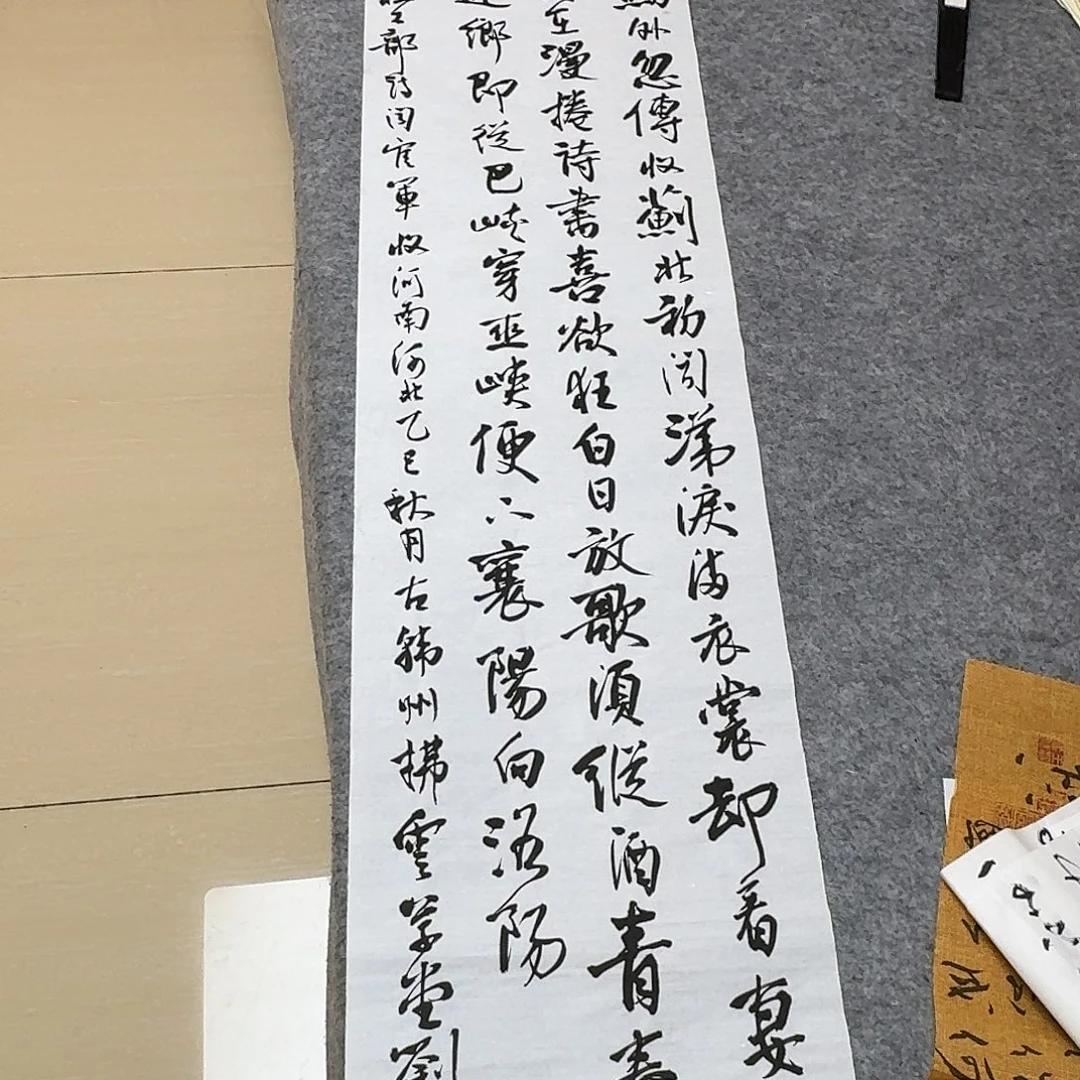 外忽傳收薊北初聞涕淚滿衣裳却看妻
在漫捲詩書喜欲狂白日放歌須縱酒青春
鄉即從巴峽穿巫峽便下襄陽向洛陽
部詩聞官軍收河南河北乙巳秋月古錦州拂雲草堂劉